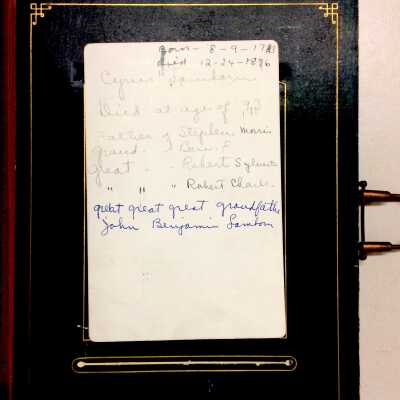 born - 8-9-17
died 12-24-1896
Cyrus Lamborn
Died at age of
Father of Stephen Morris
grand " Benj. F
great " " Robert Sylvester
" " " Robert Charles
great great great grandfather
John Benjamin Lamborn